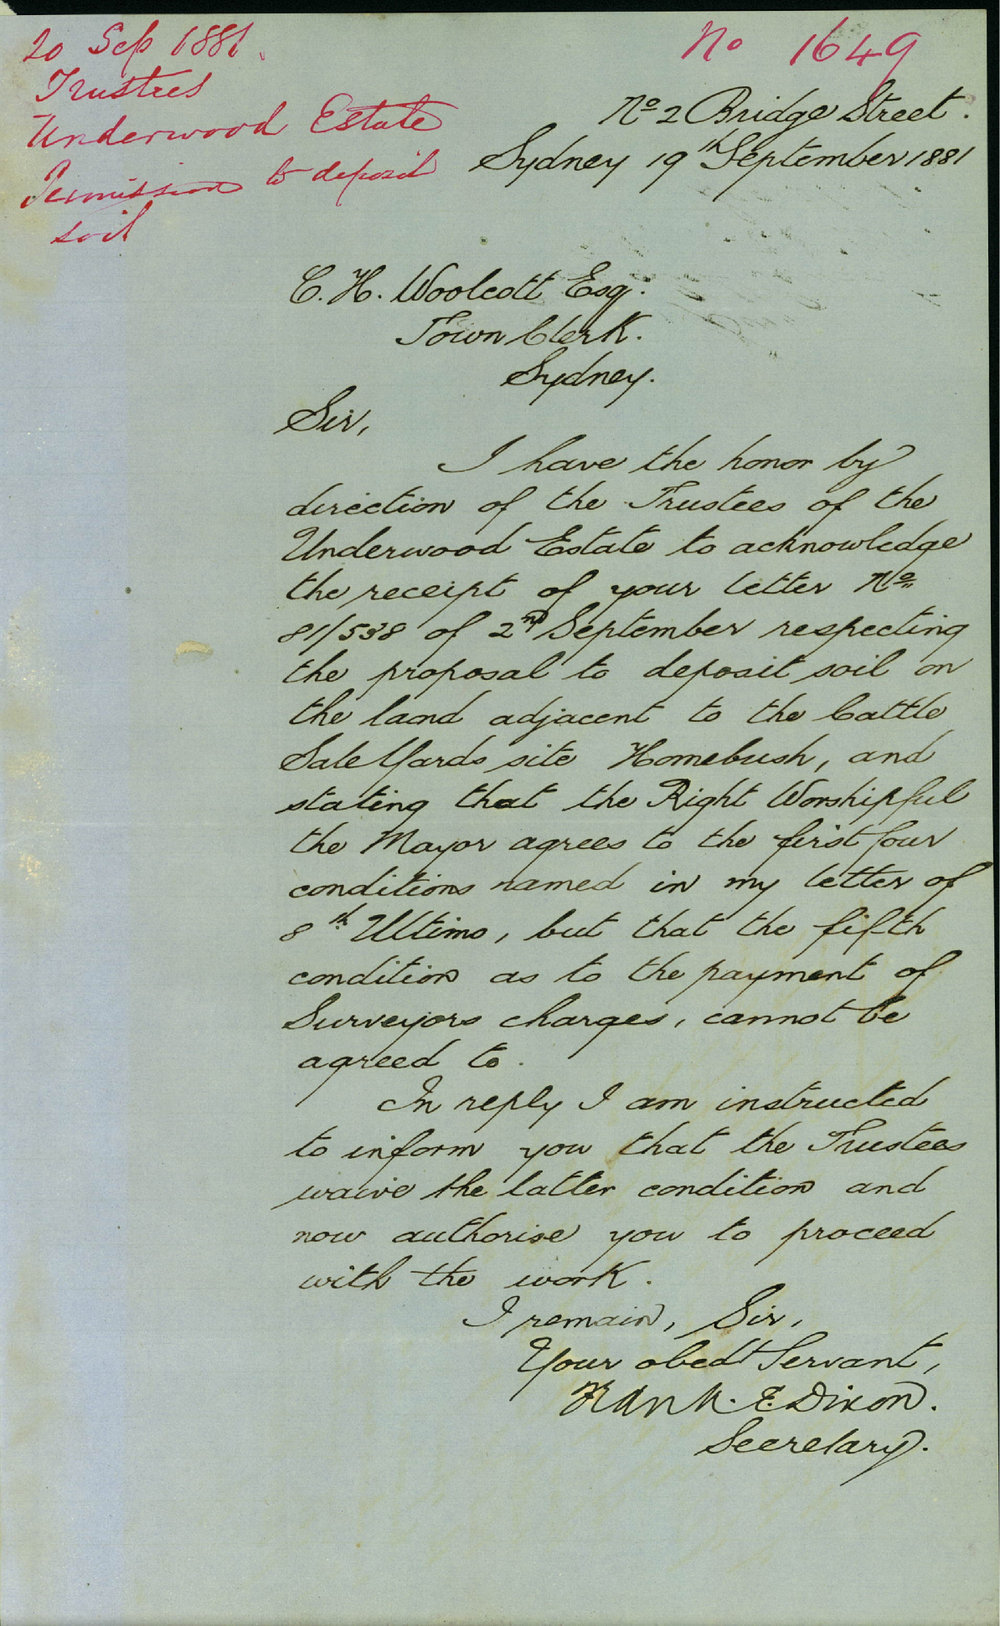 20 Sep 1881.
Trustees
Underwood Estate
Permission to deposit
soil
No 1649
No 2 Bridge Street.
Sydney 19th September 1881
C. H. Woolcott Esq.
Town Clerk.
Sydney.
Sir,
I have the honor by
direction of the Trustees of the
Underwood Estate to acknowledge
the receipt of your letter No
81/538 of 2nd September respecting
the proposal to deposit soil on
the land adjacent to the Cattle
Sale Yards site Homebush, and
stating that the Right Worshipful
the Mayor agrees to the first four
conditions named in my letter of
8th Ultimo, but that the fifth
condition as to the payment of
Surveyors charges, cannot be
agreed to.
In reply I am instructed
to inform you that the Trustees
waive the latter condition and
now authorise you to proceed
with the work.
I remain, Sir,
Your obedt Servant,
Frank. E. Dixon.
Secretary.